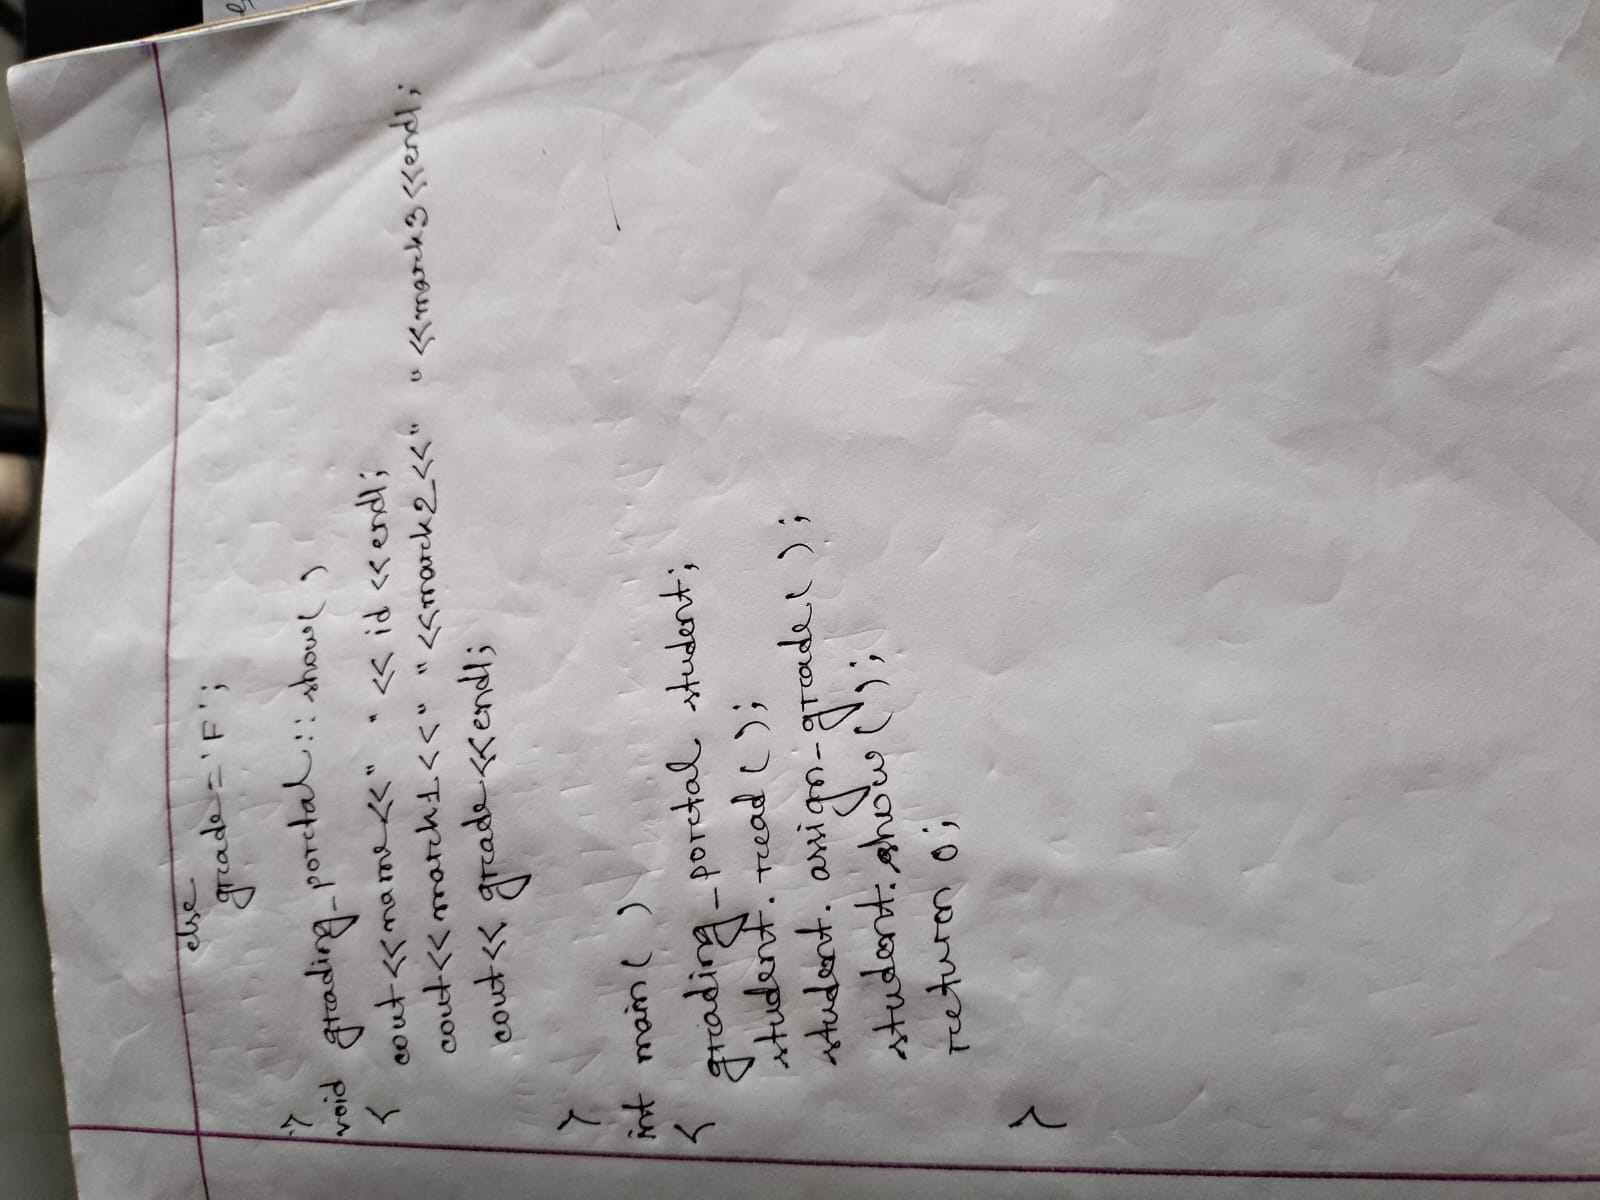 else
grade='F';
}
void grading_portal::show()
{
cout<<name<<" "<<id<<endl;
cout<<mark1<<" "<<mark2<<" "<<mark3<<endl;
cout<<grade<<endl;
}
int main()
{
grading_portal student;
student.read();
student.assign-grade();
student.show();
return 0;
}